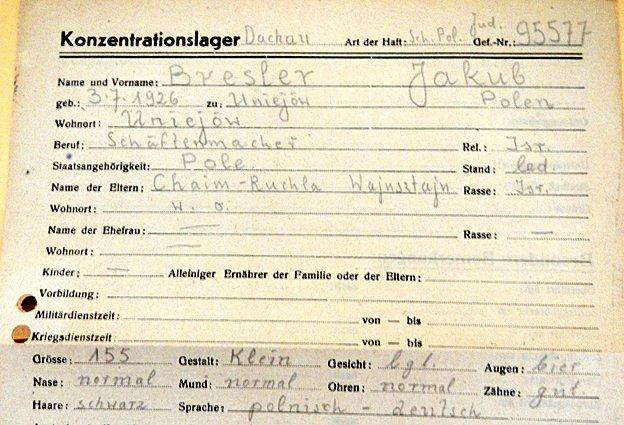 Jud.
Konzentrationslager Dachau Art der Haft: Sch. Pol. Gef.-Nr.: 95577
Name und Vorname: Bresler Jakub
geb.: 3.7.1926 zu: Uniejów Polen
Wohnort: Uniejów
Beruf: Schäftemacher Rel.: Isr.
Staatsangehörigkeit: Pole Stand: led.
Name der Eltern: Chaim-Ruchla Wajnsztajn Rasse: Isr.
Wohnort: w. o.
Name der Ehefrau: — Rasse: —
Wohnort: —
Kinder: — Alleiniger Ernährer der Familie oder der Eltern:
Vorbildung:
Militärdienstzeit: von — bis
Kriegsdienstzeit: von — bis
Grösse: 155 Gestalt: Klein Gesicht: lgl. Augen: bier
Nase: normal Mund: normal Ohren: normal Zähne: gut
Haare: schwarz Sprache: polnisch - deutsch